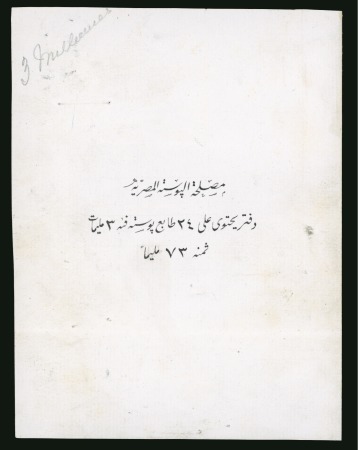 3 Millièmes
مصلحة البوستة المصرية
دفتر يحتوى على ٢٤ طابع بوسته فئة ٣ مليمات
ثمنه ٧٣ مليماً